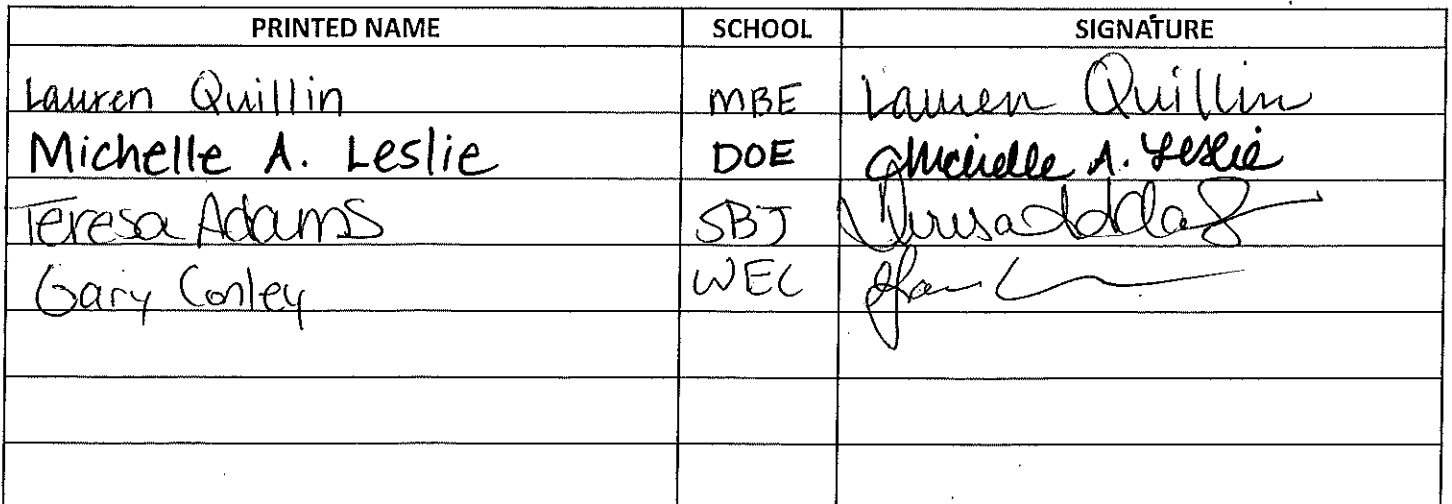 PRINTED NAME SCHOOL SIGNATURE
Lauren Quillin MBE Lauren Quillin
Michelle A. Leslie DOE Michelle A. Leslie
Teresa Adams SBJ Teresa Adams
Gary Conley WEC